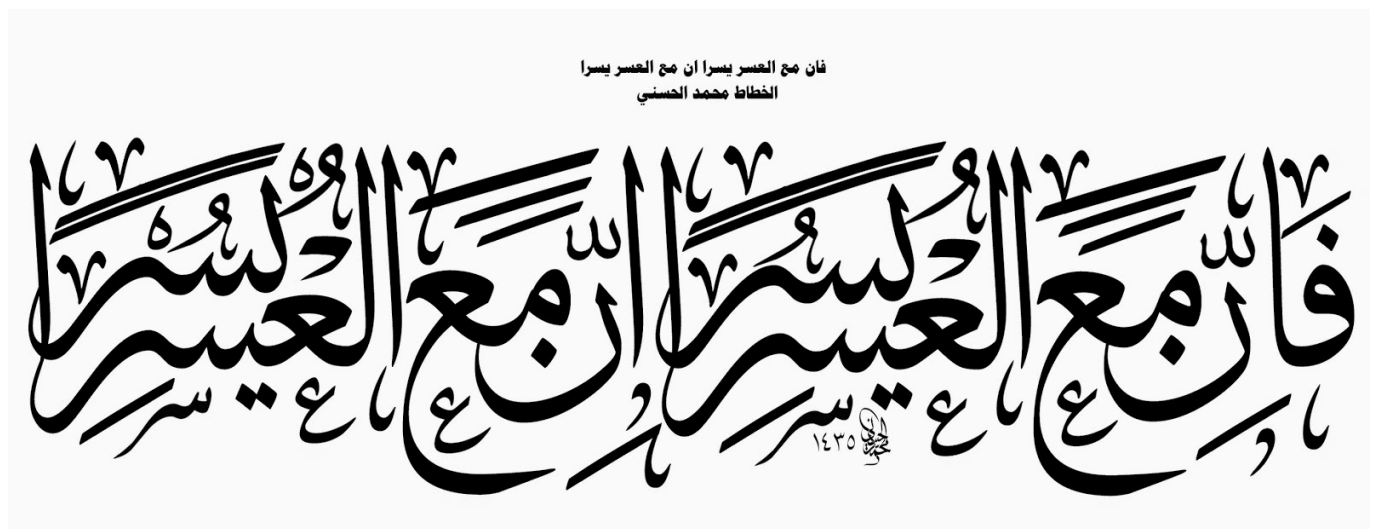 فان مع العسر يسرا ان مع العسر يسرا
الخطاط محمد الحسني
فَاِنَّ مَعَ العُسرِ يُسرًا اِنَّ مَعَ العُسرِ يُسرًا
١٤٣٥